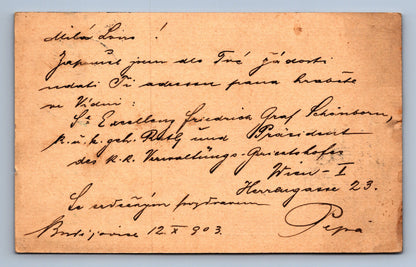 Milá Lois !
Zapomněl jsem dle Tvé žádosti
udati Ti adressu pana hraběte
ve Vídni :
Sr Excellenz Friedrich Graf Schönborn,
k. u. k. geh. Rath und Präsident
des k.k. Verwaltungs-Gerichtshofes
Wien – I
Herrengasse 23.
Se srdečným pozdravem
12. X 903. Pepa